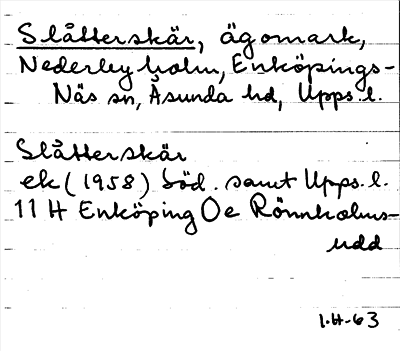 Slåtterskär, ägomark,
Nederby holm, Enköpings-
Näs sn, Åsunda hd, Upps. l.
Slåtterskär
ek (1958) Söd. samt Upps. l.
11 H Enköping Oe Rönnholms-
udd